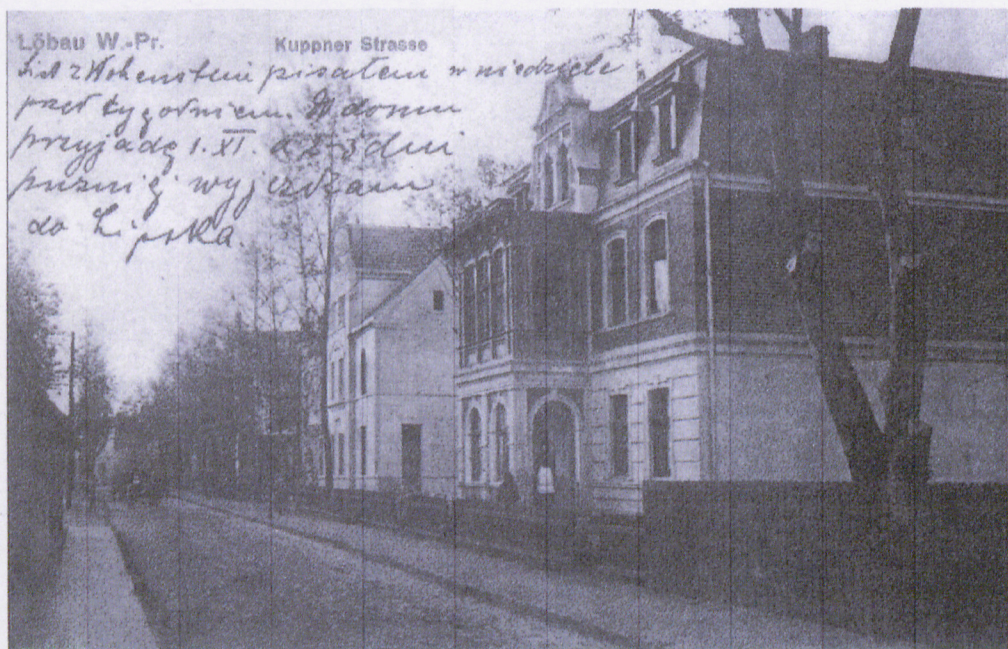 Löbau W.-Pr. Kuppner Strasse
List z Hohenstein pisałem w niedziele
przed tygodniem. W domu
przyjadę 1. XI. a 3 dni
puzniej wyjezdzam
do Lipska.